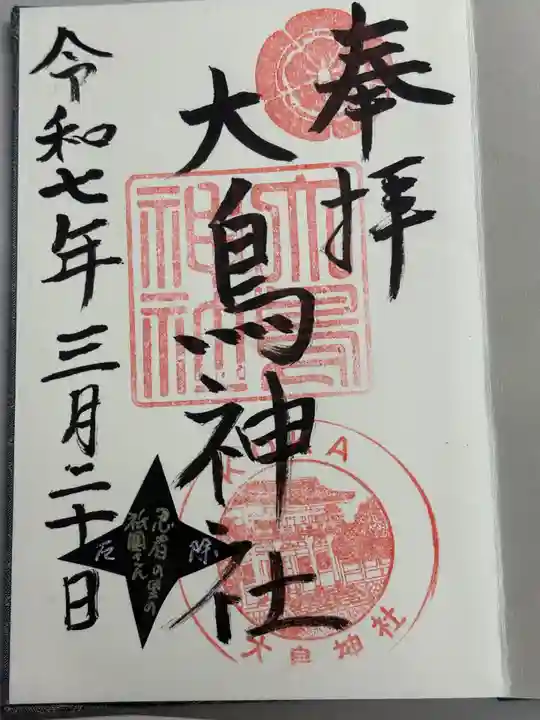 奉拝
大鳥神社
大鳥神社
KOKA
大鳥神社
忍者の里の
祇園さん
厄除
令和七年三月二十日